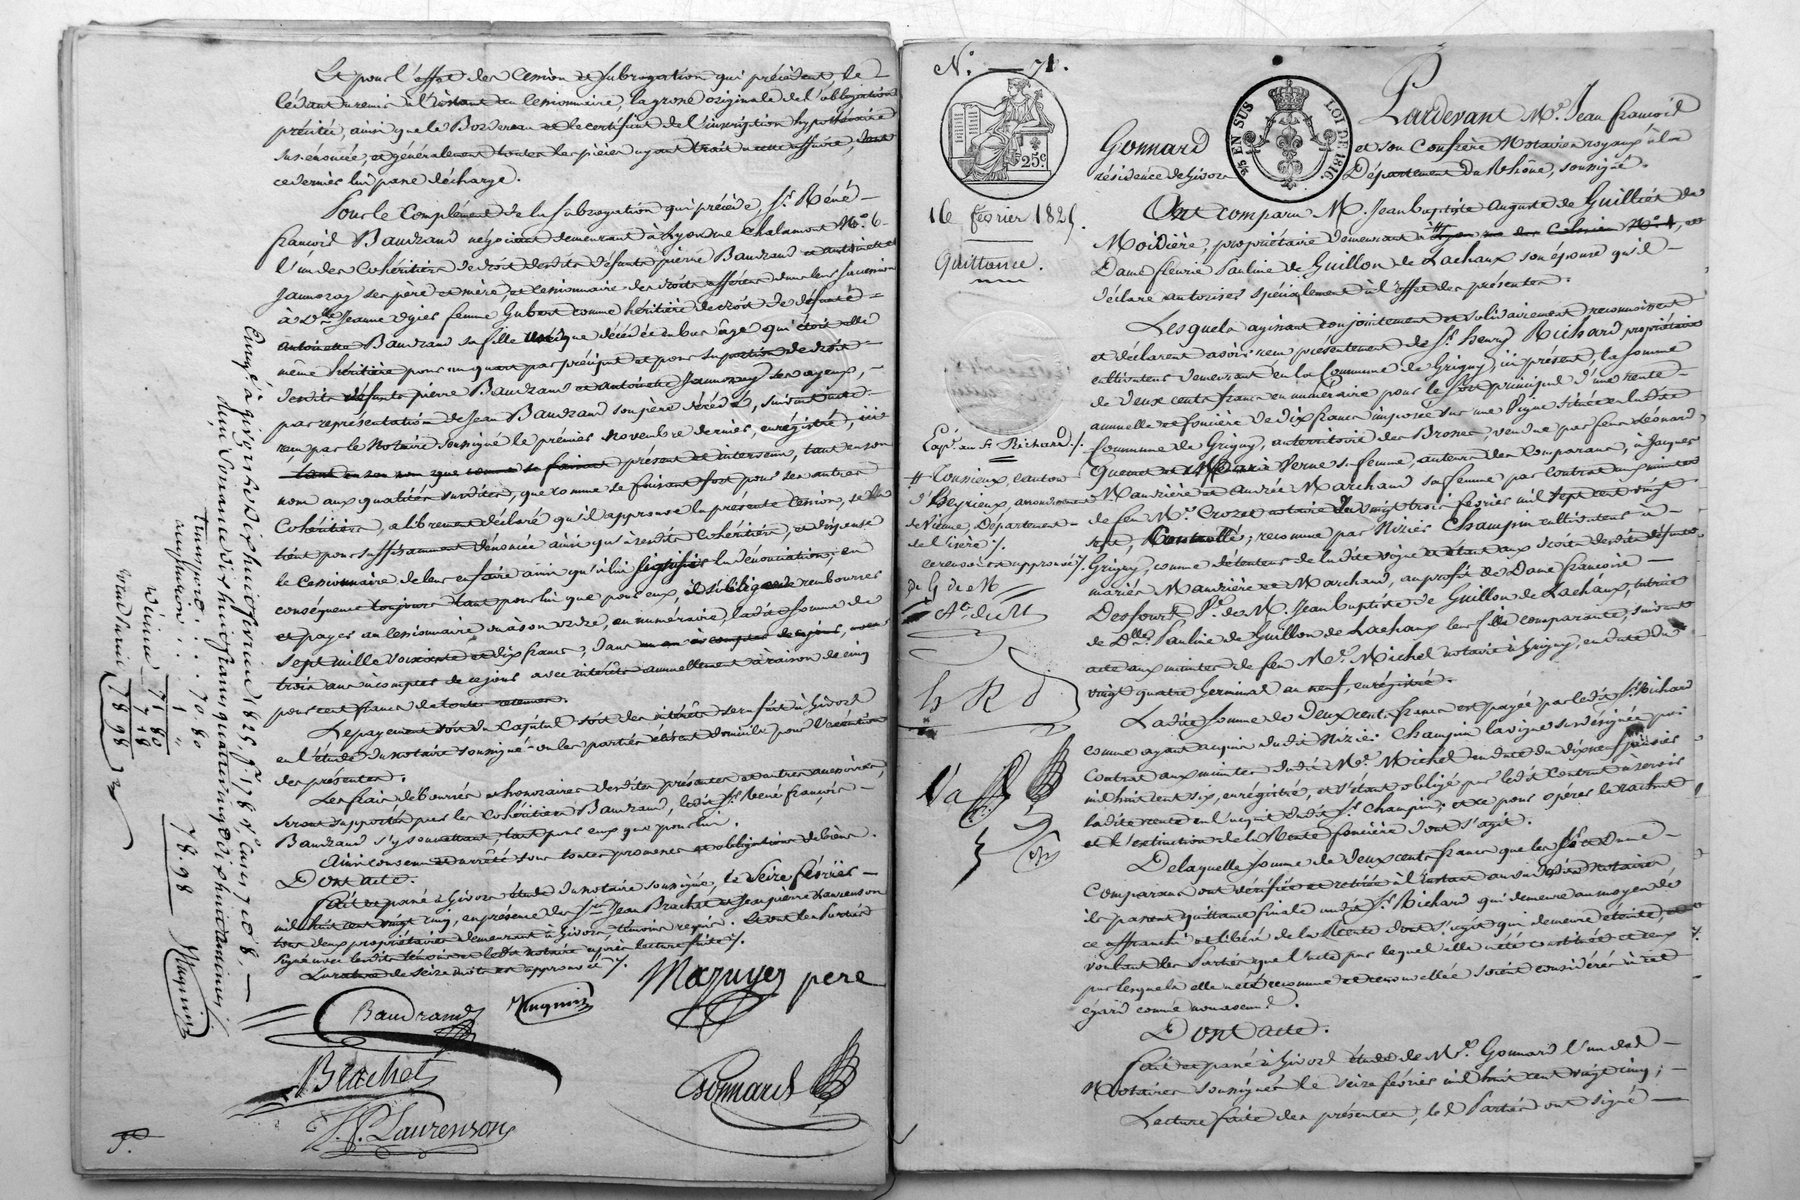 Et pour l'effet des Cession et subrogation qui précèdent le
Cédant a remis à l'instant au Cessionnaire, la grosse originale de l'obligation
précitée, ainsi que le Bordereau et le certificat de l'inscription hypothécaire
susénoncée, et généralement toutes les pièces ayant trait à cette affaire, dont
ce dernier lui passe décharge.
Pour le Complément de la subrogation qui précède, Sr. Réné
françois Baudrand négociant demeurant à Lyon rue Chalamont No. 6
l'un des Cohéritiers de droit desdits défunts pierre Baudrand et antoinette
Jaunozay ses père et mère, et Cessionnaire des droits afférens dans leurs successions
à Dlle Jeanne ogier femme Gubert comme héritière de droit de défunte
antoinette Baudrand sa fille unique décédée en bas âge qui étoit elle
même héritière pour un quart par préciput et pour sa portion de droit
desdits défunts pierre Baudrand et antoinette Jaunozay ses ayeux,
par représentation de Jean Baudrand son père décédé, suivant acte
reçu par le Notaire soussigné le premier novembre dernier, enregistré, ici
présent et intervenu, tant en son
nom aux qualités susdites, que comme se faisant fort pour ses autres
Cohéritiers, a librement déclaré qu'il approuve la présente Cession, se la
tient pour suffisamment dénoncée ainsi qu'à sesdits Cohéritiers, et dispense
le Cessionnaire de leur en faire ainsi qu'à lui signifier la dénonciation; en
conséquence toujours tant pour lui que pour eux, il s'oblige de rembourser
et payer au Cessionnaire ou à son ordre, en numéraire, ladite somme de
sept mille soixante et dix francs, dans
trois ans à compter de ce jour avec intérêts annuellement à raison de cinq
pour cent francs de toutes retenues.
Le payement soit du Capital soit des intérêts sera fait à Givors
en l'étude du notaire soussigné où les parties élisent domicile pour l'exécution
des présentes.
Les frais déboursés et honoraires desdites présentes et autres accessoires,
seront supportés par les Cohéritiers Baudrand, ledit Sr. Réné françois
Baudrand s'y soumettant, tant pour eux que pour lui.
Ainsi convenu et arrêté sous toutes promesses et obligations de biens.
Dont acte.
Fait et passé à Givors étude du notaire soussigné, le seize février
mil huit cent vingt cinq, en présence de Srs Jean Brachet et Jean pierre Laurenson
tous deux propriétaires demeurant à Givors, témoins requis. Et ont les Parties
signé avec lesdits témoins et ledit notaire après lecture faite.
La rature de seize mots est approuvée.
Mazuyer pere
Baudrand
Huguin
Brachet
J. P. Laurenson
Gonnard
Enregé. à givors le dix huit février 1825, fo. 178 Vo. Cases 7 et 8.
Transport : 70.80
Décime 71 80
7 18
78 98
78.98
No. 71.
25c.
EN SUS
LOI DE 1816
16 février 1825.
Quittance.
Expé. au Sr Richard
# Toussieux, canton
d'Heyrieux, arrondissement
de Vienne, Département
de l'isère
ce renvoi est approuvé
Pardevant Me. Jean françois
Gonnard et son Confrère Notaires royaux à la
résidence de Givors Département du Rhône, soussigné.
Ont comparu M. Jean Baptiste Auguste de Guillier de
Moidière, propriétaire demeurant à # Lyon rue des Colonies No. 4, et
Dame fleurie Pauline de Guillon de Lachaux son épouse qu'il
déclare autoriser spécialement à l'effet des présentes.
Lesquels agissant conjointement et solidairement reconnoissent
et déclarent avoir reçu présentement de Sr. henry Richard propriétaire
cultivateur demeurant en la Commune de Grigny, ici présent, la somme
de deux cents francs en numéraire pour le sort principal d'une rente
annuelle et foncière de dix francs imposée sur une Vigne située en ladite
Commune de Grigny, au territoire des Brosses, vendue par feus Léonard
Quemet et Marie Verne sa femme, auteurs des Comparans, à Jaques
Maudière et andrée Marchand sa femme, par contrat aux minutes
de feu Me. Crozet notaire du vingt trois février mil sept cent vingt
sept, Controllé; reconnue par Nizier Champin cultivateur à
Grigny, comme détenteur de ladite vigne et étant aux droits desdits défunts
mariés Maudière et Marchand, au profit de Dame francoise
Desfours Ve. de M. Jean Baptiste de Guillon de Lachaux, tutrice
de Dlle. Pauline de Guillon de Lachaux leur fille comparante, suivant
acte aux minutes de feu Me. Michel notaire à Grigny, en date du
vingt quatre Germinal an neuf, enregistré.
Ladite somme de deux cents francs est payée par ledit Sr. Richard
comme ayant acquis dudit Nizier Champin la vigne susdésignée par
Contrat aux minutes dudit Me. Michel en date du dixneuf janvier
mil huit cent six, enregistré, et s'étant obligé par ledit contrat à servir
ladite rente en l'acquit dudit Sr. Champin; et ce pour opérer le rachat
et l'extinction de la Rente foncière dont s'agit.
De laquelle somme de deux cents francs que les Sr. et Dame
Comparans ont vérifiée et retirée à l'instant au vu desdits Notaires
ils passent quittance finale audit Sr. Richard qui demeure au moyen de
ce affranchi et libéré de la Rente dont s'agit qui demeure éteinte,
voulant les Parties que l'acte par lequel elle a été constituée et ceux
par lesquels elle a été reconnue et renouvellée soient considérés à cet
égard comme non avenus.
Dont acte.
Fait et passé à Givors étude de Me. Gonnard l'un des
Notaires soussignés le seize février mil huit cent vingt cinq;
Lecture faite des présentes, les Parties ont signé